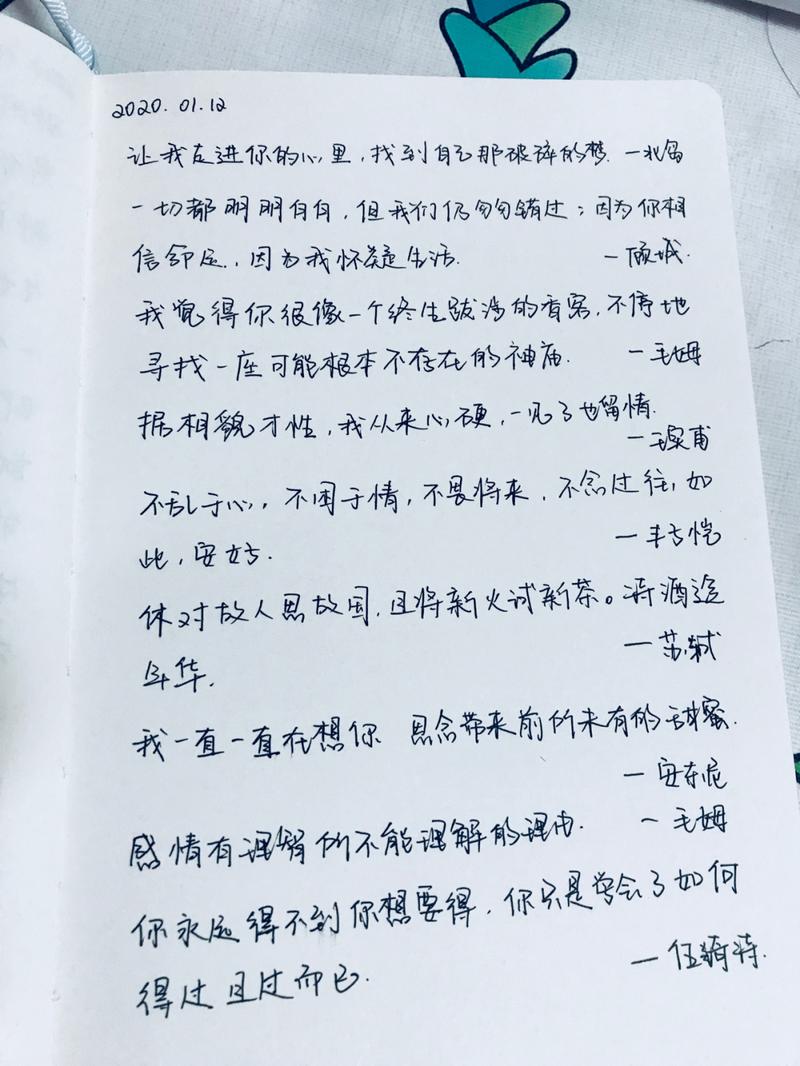 2020.01.12
让我走进你的心里，找到自己那破碎的梦. —北岛
一切都明明白白，但我们仍匆匆错过；因为你相
信命运，因为我怀疑生活. —顾城.
我觉得你很像一个终生跋涉的香客，不停地
寻找一座可能根本不存在的神庙. —毛姆
据相貌才性，我从来心硬，一见了也留情.
—王实甫
不乱于心，不困于情，不畏将来，不念过往，如
此，安好. —丰子恺
休对故人思故国，且将新火试新茶。诗酒趁
年华. —苏轼
我一直一直在想你 思念带来前所未有的甜蜜.
—安东尼
感情有理智所不能理解的理由. —毛姆
你永远得不到你想要得，你只是学会了如何
得过且过而已. —伍绮诗.